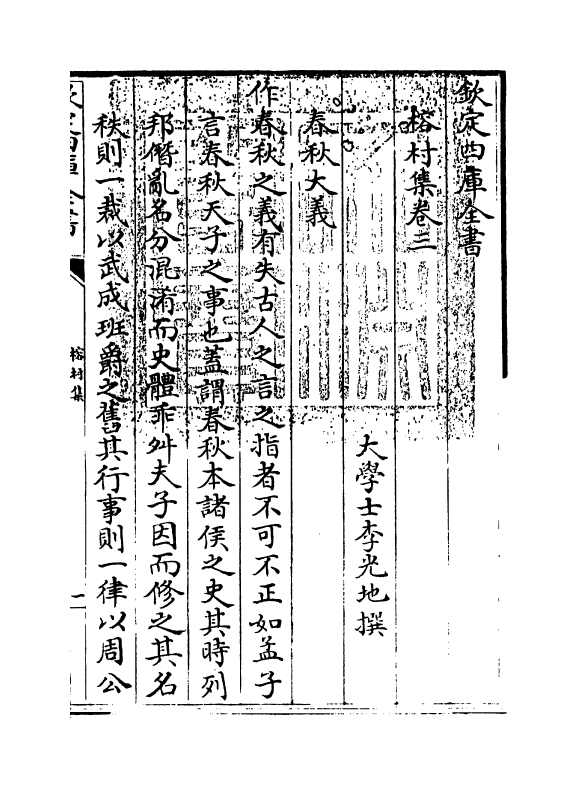 欽定四庫全書
榕村集卷三
大學士李光地撰
春秋大義
作春秋之義有失古人之言之指者不可不正如孟子
言春秋天子之事也蓋謂春秋本諸侯之史其時列
邦僭亂名分混淆而史體乖舛夫子因而修之其名
秩則一裁以武成班爵之舊其行事則一律以周公
欽定四庫全書
榕村集
一